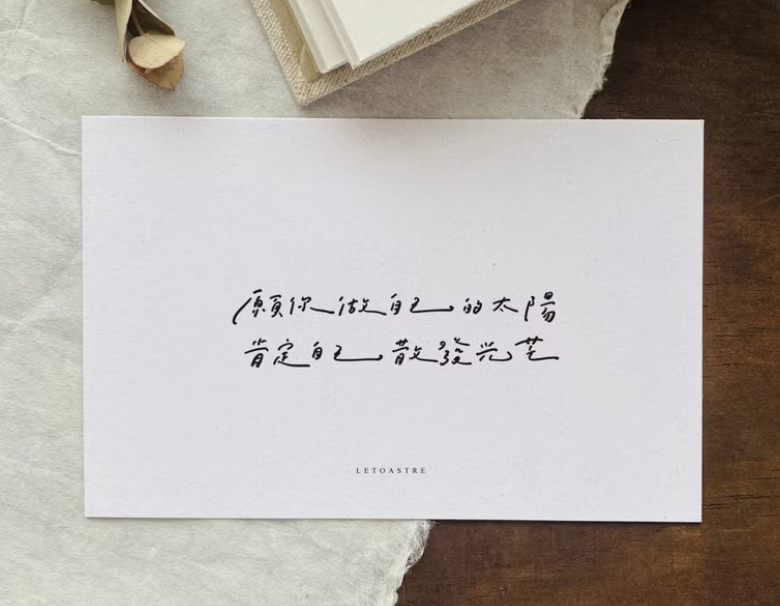 願你做自己的太陽
肯定自己散發光芒
LETOASTRE